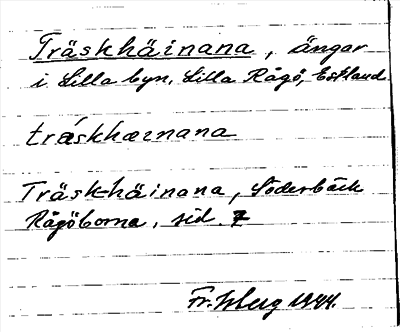 Träskhäinana, ängar
i Lilla byn, Lilla Rågö, Estland
träskhæinana
Träsk-häinana, Söderbäck
Rågöborna, sid. 7
Fr. 1944.